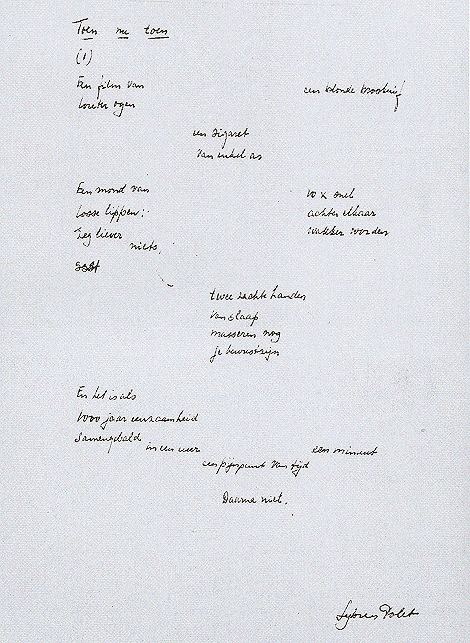 Toen nu toen
(1)
Een film van
louter ogen
een blonde
een sigaret
van enkel as
Een mond van
losse lippen:
zeg liever
niets,
10 x snel
achter elkaar
wakker worden
twee zachte handen
van slaap
masseren nog
je bewustzijn
En het is als
1000 jaar eenzaamheid
samengebald
in een uur
een minuut
een pijnpunt van tijd
Daarna niet.
Sybren Polet